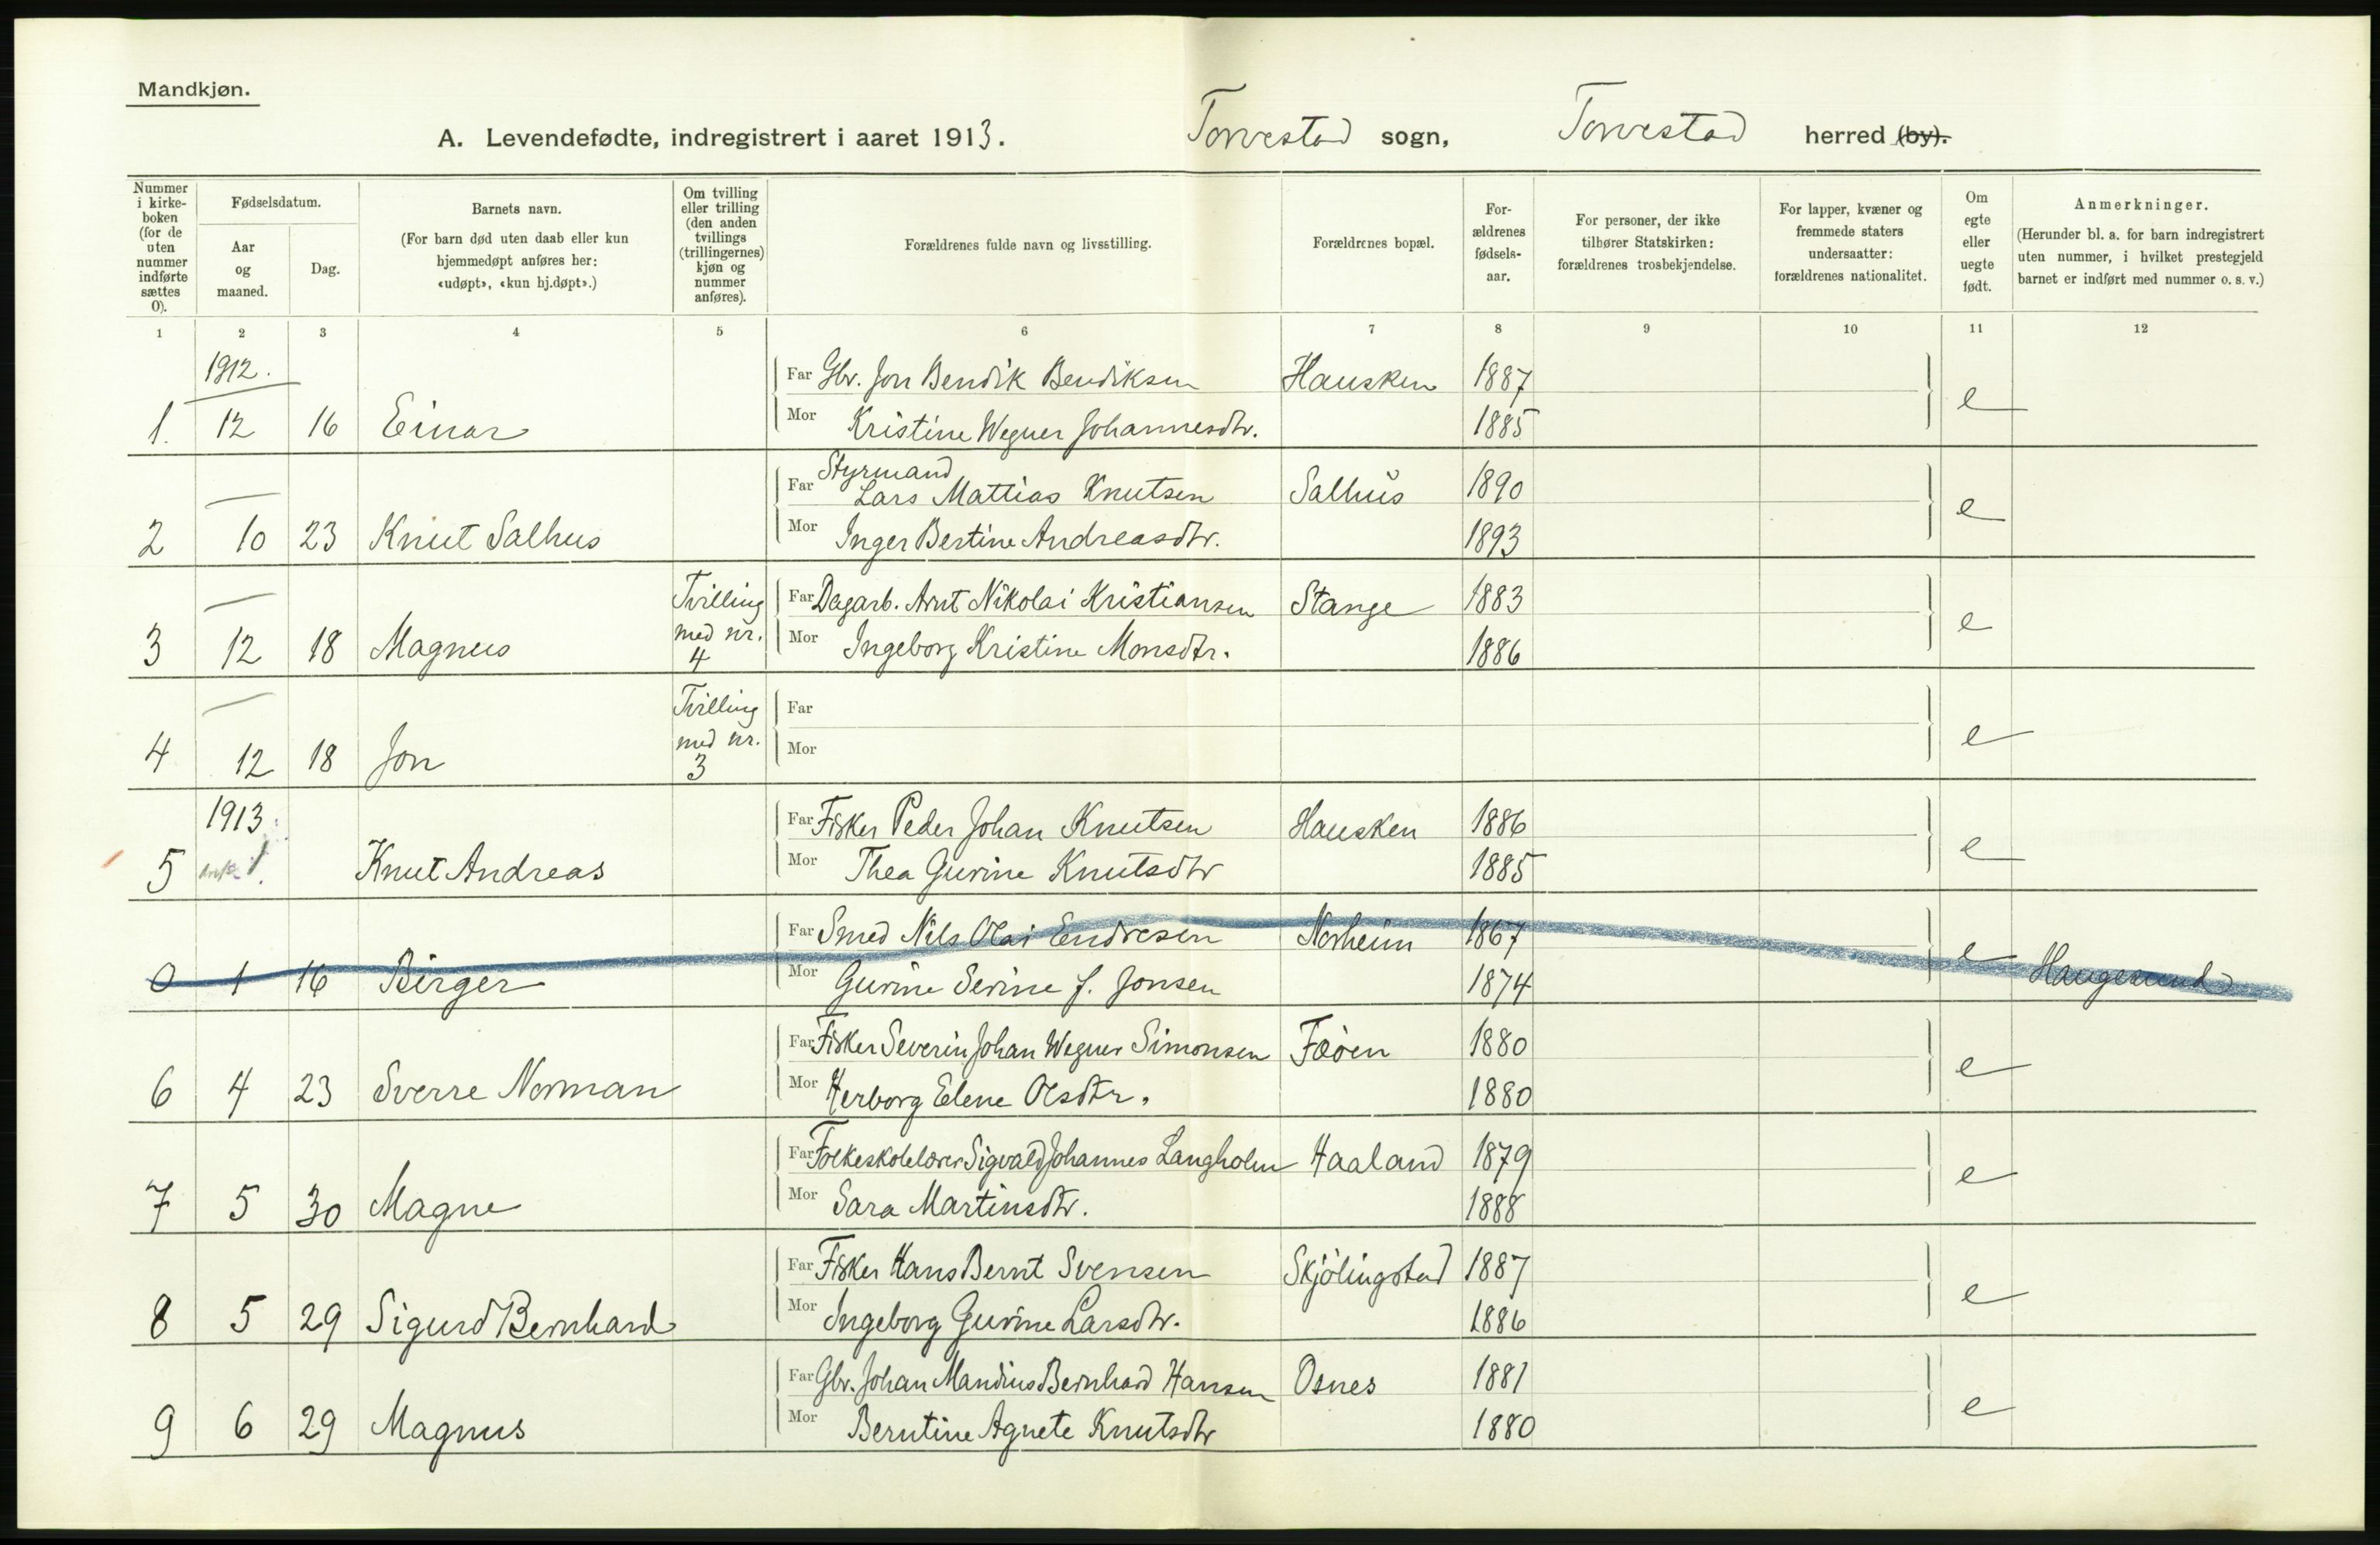 Mandkjøn.
A. Levendefødte, indregistrert i aaret 1913. Torvestad sogn, Torvestad herred (by).
Nummer i kirke-boken (for de uten nummer indførte sættes 0).
Fødselsdatum.
Aar og maaned.
Dag.
Barnets navn.
(For barn død uten daab eller kun hjemmedøpt anføres her: «udøpt», «kun hj.døpt».)
Om tvilling eller trilling (den anden tvillings (trillingernes) kjøn og nummer anføres).
Forældrenes fulde navn og livsstilling.
Forældrenes bopæl.
For-ældrenes fødsels-aar.
For personer, der ikke tilhører Statskirken: forældrenes trosbekjendelse.
For lapper, kvæner og fremmede staters undersaatter: forældrenes nationalitet.
Om egte eller uegte født.
Anmerkninger.
(Herunder bl. a. for barn indregistrert uten nummer, i hvilket prestegjeld barnet er indført med nummer o. s. v.)
1 2 3 4 5 6 7 8 9 10 11 12
1912.
Far Gbr. Jon Bendik Bendiksen Hausken 1887
1. 12 16 Einar Mor Kristine Wegner Johannesdtr. 1885 e
Styrmand
Far Lars Mattias Knutsen Salhus 1890
2 — 10 23 Knut Salhus Mor Inger Bertine Andreasdtr. 1893 e
Tvilling Far Dagarb. Arnt Nikolai Kristiansen Stange 1883
3 — 12 18 Magnus med nr. 4 Mor Ingeborg Kristine Monsdtr. 1886 e
Tvilling Far
4 — 12 18 Jon med nr. 3 Mor e
1913.
Far Fisker Peder Johan Knutsen Hausken 1886
5 1. Knut Andreas Mor Thea Gurine Knutsdtr 1885 e
Far Smed Nils Olai Endresen Norheim 1867
0 1 16 Birger Mor Gurine Serine J. Jonsen 1874 e Haugesund
Far Fisker Severin Johan Wegner Simonsen Føöen 1880
6 4 23 Sverre Norman Mor Herborg Elene Olsdtr. 1880 e
Far Folkeskolelærer Sigvald Johannes Langholm Haaland 1879
7 5 30 Magne Mor Sara Martinsdtr. 1888 e
Far Fisker Hans Bernt Svensen Skjölingstad 1887
8 5 29 Sigurd Bernhard Mor Ingeborg Gurine Larsdtr. 1886 e
Far Gbr. Johan Mandius Bernhard Hansen Osnes 1881
9 6 29 Magnus Mor Berntine Agnete Knutsdtr 1880 e